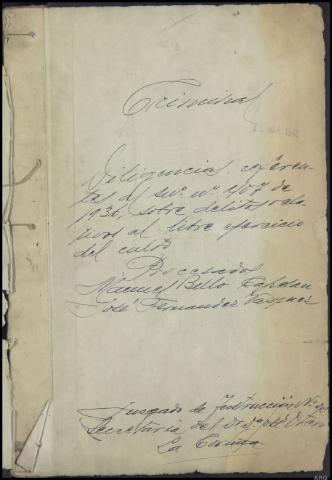 Criminal
Diligencias referen-
tes al sumº. nº. 407 de
1936, sobre delitos rela-
tivos al libre ejercicio
del culto
Procesados
Manuel Bello Roldan
José Fernandez Vazquez
Juzgado de Instrucción Nº.
Secretaría del Dr. D. Otero
La Coruña